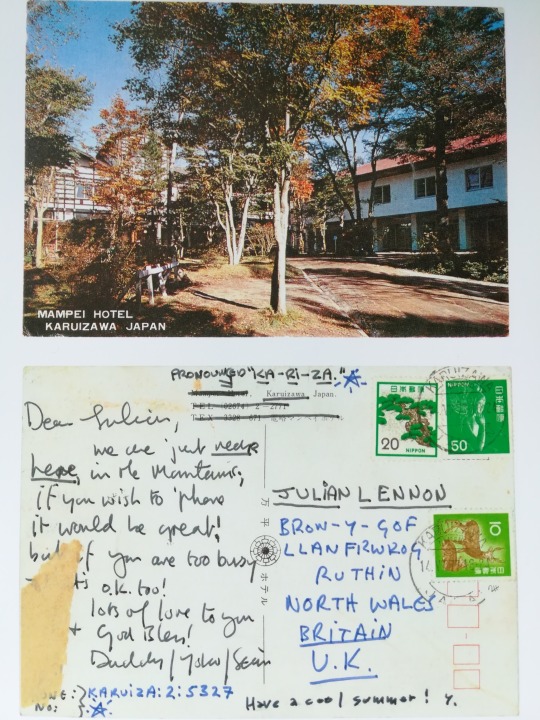 MAMPEI HOTEL
KARUIZAWA JAPAN
PRONOUNCED "KA-RI-ZA."
Karuizawa, Japan.
TEL 02674 2-2771
Dear Julian,
we are just near
here, in the Mountains;
if you wish to 'phone
it would be great!
but if you are too busy
it's O.K. too!
lots of love to you
+ God Bless!
Daddy/Yoko/Sean
PHONE: KARUIZA: 2: 5327
NO:
万平ホテル
日本郵便
20
NIPPON
日本郵便
50
NIPPON
10
日本郵便
JULIAN LENNON
BRON-Y-GOF
LLANFIRWROG
RUTHIN
NORTH WALES
BRITAIN
U.K.
Have a cool summer! Y.